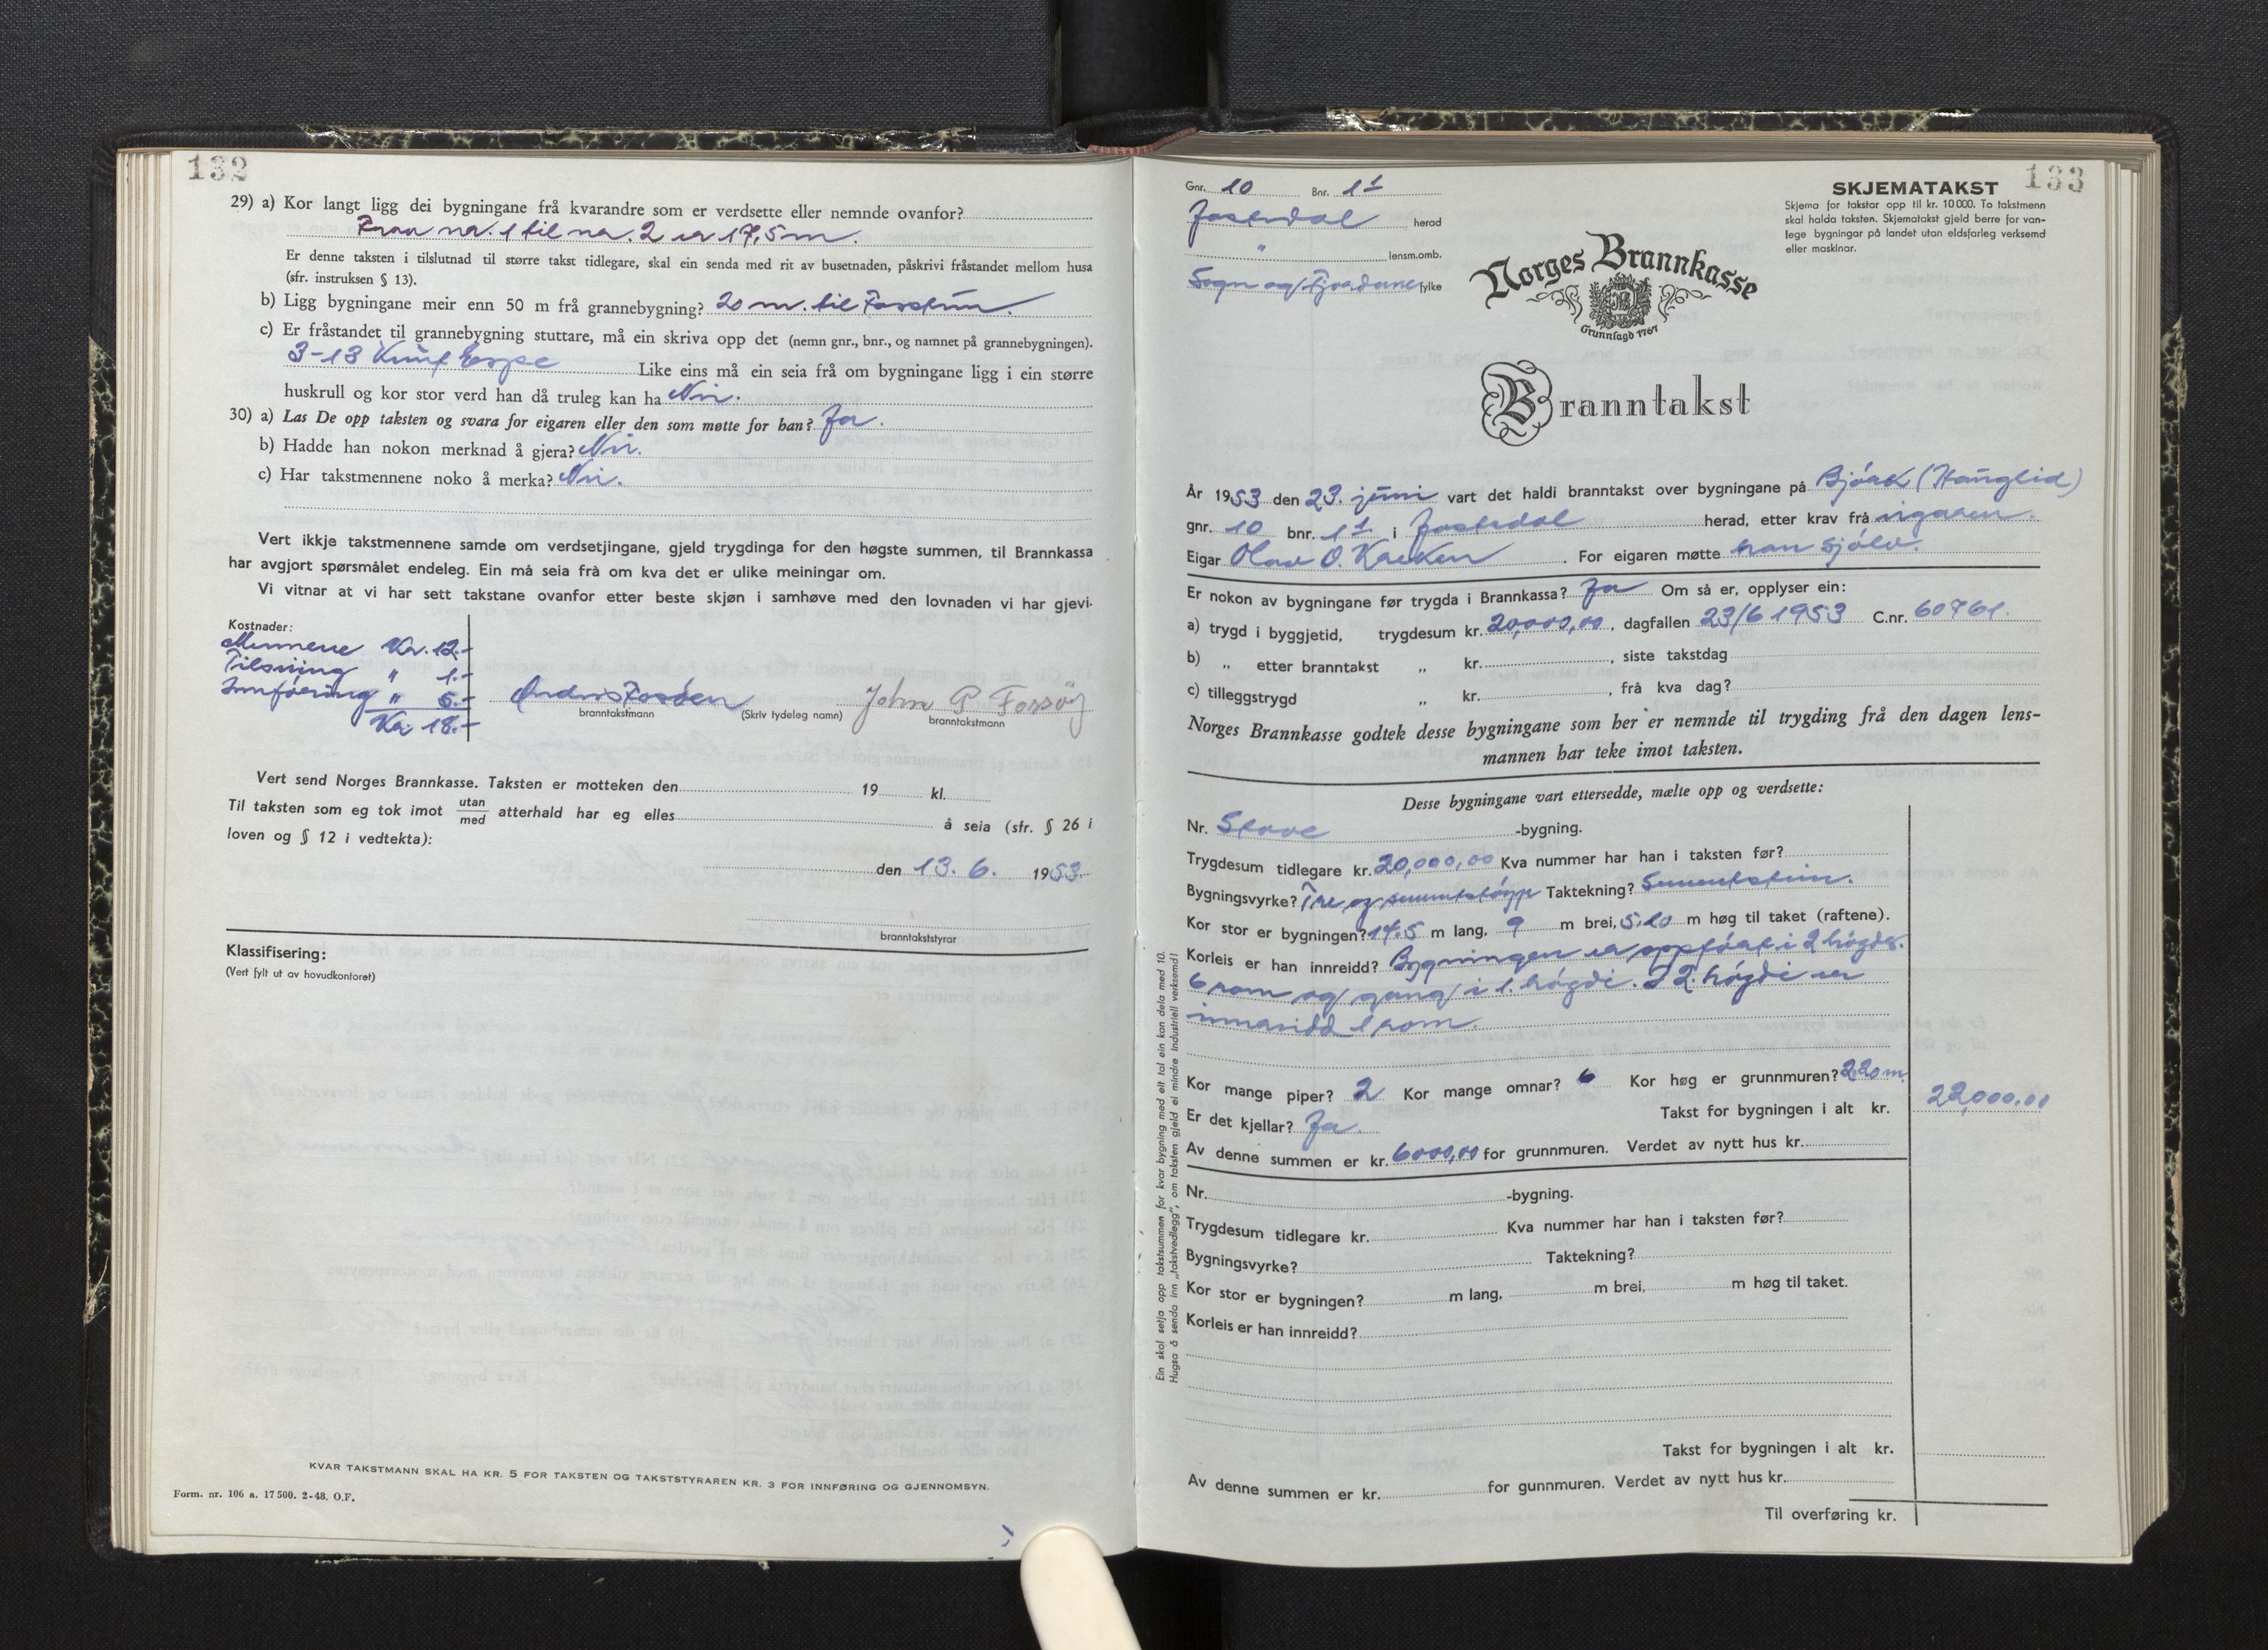 132
29) a) Kor langt ligg dei bygningane frå kvarandre som er verdsette eller nemnde ovanfor?
Fraa nr. 1 til nr. 2 er 17,5 m.
Er denne taksten i tilslutnad til større takst tidlegare, skal ein senda med rit av busetnaden, påskrivi fråstandet mellom husa
(sfr. instruksen § 13).
b) Ligg bygningane meir enn 50 m frå grannebygning? 20 m. til
c) Er fråstandet til grannebygning stuttare, må ein skriva opp det (nemn gnr., bnr., og namnet på grannebygningen).
3-13 Knut Espe Like eins må ein seia frå om bygningane ligg i ein større
huskrull og kor stor verd han då truleg kan ha Nei.
30) a) Las De opp taksten og svara for eigaren eller den som møtte for han? Ja.
b) Hadde han nokon merknad å gjera? Nei.
c) Har takstmennene noko å merka? Nei.
Vert ikkje takstmennene samde om verdsetjingane, gjeld trygdinga for den høgste summen, til Brannkassa
har avgjort spørsmålet endeleg. Ein må seia frà om kva det er ulike meiningar om.
Vi vitnar at vi har sett takstane ovanfor etter beste skjøn i samhøve med den lovnaden vi har gjevi.
Kostnader:
Mennene Kr. 12.-
Tilsning " 1.-
Innføring " 5.-
Kr. 18.-
Anders Fossøen
John P Fossøy
branntakstmann (Skriv tydeleg namn) branntakstmann
Vert send Norges Brannkasse. Taksten er motteken den 19 kl.
Til taksten som eg tok imot utan/med atterhald har eg elles å seia (sfr. § 26 i
loven og § 12 i vedtekta):
den 13. 6. 1953.
branntakststyrar
Klassifisering:
(Vert fylt ut av hovudkontoret)
KVAR TAKSTMANN SKAL HA KR. 5 FOR TAKSTEN OG TAKSTSTYRAREN KR. 3 FOR INNFØRING OG GJENNOMSYN.
Form. nr. 106 a. 17 500. 2-48. O.F.
133
Gnr. 10 Bnr. 11
Jostedal herad
" lensm.omb.
Sogn og Fjordane fylke
SKJEMATAKST
Skjema for takstar opp til kr. 10 000. To takstmenn
skal halda taksten. Skjematakst gjeld berre for van-
lege bygningar på landet utan eldsfarleg verksemd
eller maskinar.
Norges Brannkasse
Grunnlagd 1767
Branntakst
År 1953 den 23. juni vart det haldi branntakst over bygningane på Bjórk (Hauglid)
gnr. 10 bnr. 11 i Jostedal herad, etter krav frå eigaren.
Eigar Olav O. Kreken. For eigaren møtte han sjólv.
Er nokon av bygningane før trygda i Brannkassa? Ja Om så er, opplyser ein:
a) trygd i byggjetid, trygdesum kr. 20,000,00, dagfallen 23/6 1953 C.nr. 60761.
b) „ etter branntakst „ kr. , siste takstdag
c) tilleggstrygd „ kr. , frå kva dag?
Norges Brannkasse godtek desse bygningane som her er nemnde til trygding frå den dagen lens-
mannen har teke imot taksten.
Desse bygningane vart ettersedde, mælte opp og verdsette:
Nr. Stove -bygning.
Trygdesum tidlegare kr. 20,000,00 Kva nummer har han i taksten før?
Bygningsvyrke? Tre og sementstóyp Taktekning? Sementstein.
Kor stor er bygningen? 14.5 m lang, 9 m brei, 5,20 m høg til taket (raftene).
Korleis er han innreidd? Bygningen er oppfóert i 2 hógder.
6 rom og gang i 1. hógdi. I 2. hógdi er
innreidd 1 rom.
Kor mange piper? 2 Kor mange omnar? 6 Kor høg er grunnmuren? 2,20 m.
Er det kjellar? Ja. Takst for bygningen i alt kr. 22,000.00
Av denne summen er kr. 6000,00 for grunnmuren. Verdet av nytt hus kr.
Nr. -bygning.
Trygdesum tidlegare kr. Kva nummer har han i taksten før?
Bygningsvyrke? Taktekning?
Kor stor er bygningen? m lang, m brei, m høg til taket.
Korleis er han innreidd?
Takst for bygningen i alt kr.
Av denne summen er kr. for gunnmuren. Verdet av nytt hus kr.
Til overføring kr.
Ein skal setja opp takstsummen for kvar bygning med eit tal ein kan dela med 10.
Hugsa å senda inn „takstvedlegg", om taksten gjeld ei mindre industriell verksemd!